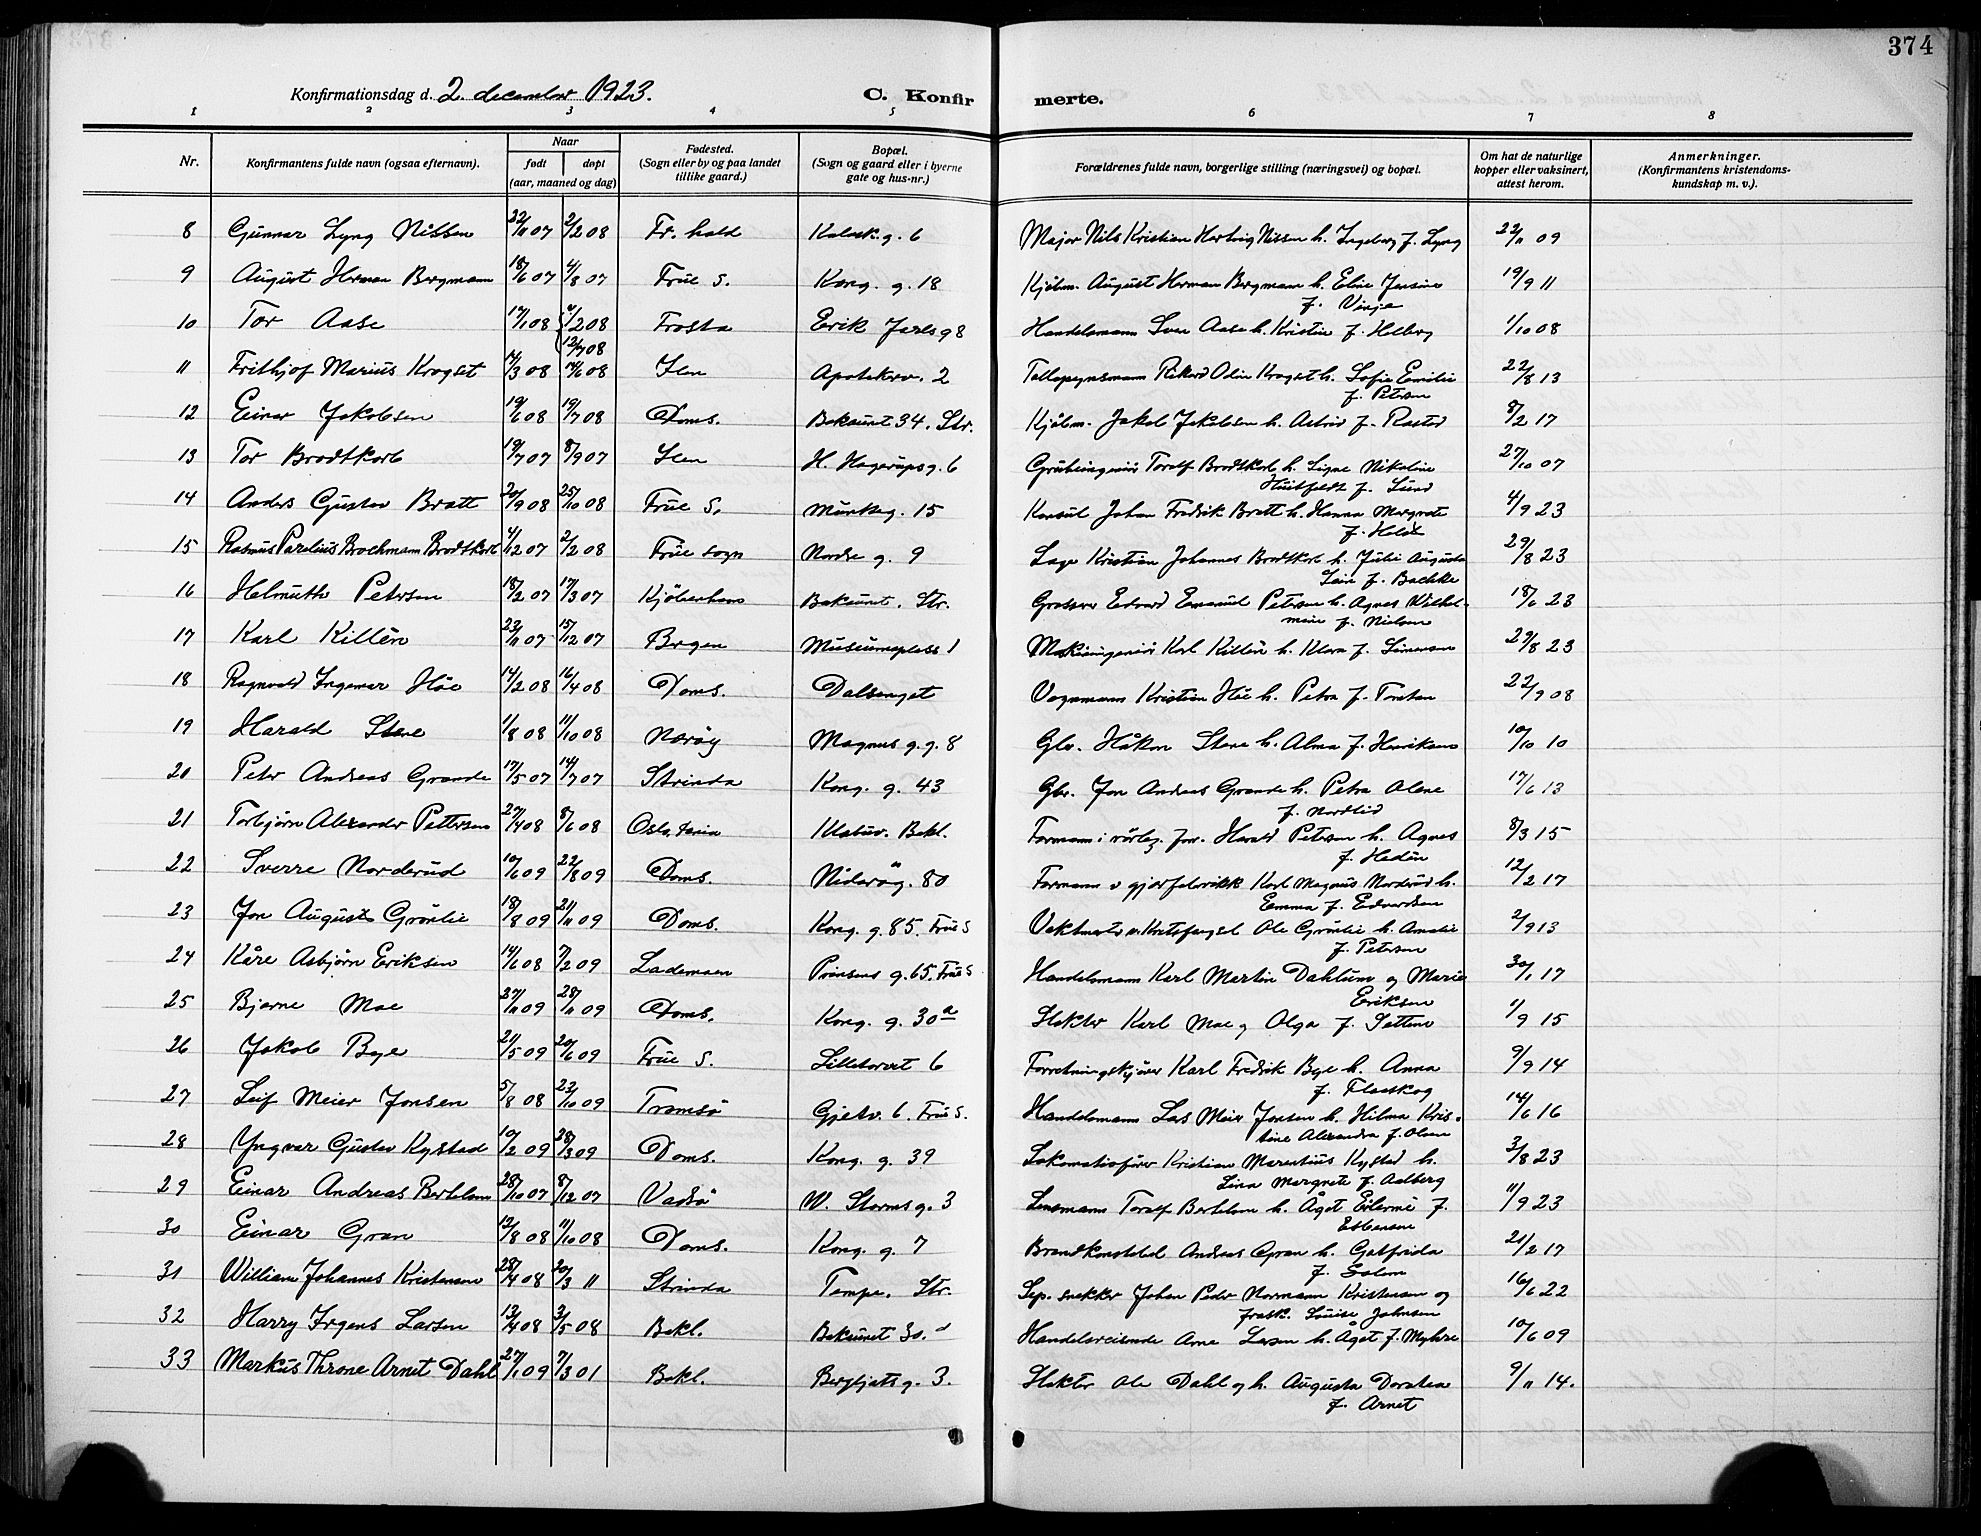 374
Konfirmationsdag d. 2. december 1923.
C. Konfir merte.
1 2 3 4 5 6 7 8
Nr. Konfirmantens fulde navn (ogsaa efternavn). Naar født døpt (aar, maaned og dag) Fødested. (Sogn eller by og paa landet tillike gaard.) Bopæl. (Sogn og gaard eller i byerne gate og hus-nr.) Forældrenes fulde navn, borgerlige stilling (næringsvei) og bopæl. Om hat de naturlige kopper eller vaksinert, attest herom. Anmerkninger. (Konfirmantens kristendoms-kundskap m. v.).
8 Gunnar Lyng Nissen 22/11 07 2/2 08 Fr. hald Kalvsk. g. 6 Major Nils Kristian Hertvig Nissen h. Ingeborg f. Lyng 22/11 09
9 August Herman Bergmann 18/6 07 4/8 07 Frue S. Kong. g. 18 Kjøbm. August Herman Bergmann h. Eline Jensine
f. Vinje 19/9 11
10 Tor Aase 17/1 08 Frosta Erik Jarls g 8 Handelsmann Sven Aase h. Kristin f. Helberg 1/10 08
12/7 08
11 Frithjof Marius Krogset 14/3 08 14/6 08 Ilen Apotekerv. 2 Tollopsynsmann Rikard Odin Krogset h. Sofie Emilie
f. Petersen 22/8 13
12 Einar Jakobsen 19/6 08 19/7 08 Doms. Bakaunet 34. Str. Kjøbm. Jakob Jakobsen h. Astrid f. Rostad 8/2 17
13 Tor Brodtkorb 19/7 07 8/9 07 Ilen H. Hagerups g. 6 Grubeingeniør Toralf Brodtkorb h. Signe Nikoline
Huitfeldt f. Lund 27/10 07
14 Anders Gustav Bratt 20/9 08 25/10 08 Frue S. Munkeg. 15 Konsul Johan Fredrik Bratt h. Hanna Margrete
4/9 23
15 Rasmus Parelius Brochmann Brodtkorb 4/12 07 2/2 08 Frue sogn Nordre g. 9 Kristian Johannes Brodtkorb h. Julie Augusta
f. Bachke 29/8 23
16 Helmuth Petersen 18/2 07 17/3 07 Kjøbenhavn Bakaunet. Str. Grosserer Edvard Emanuel Petersen h. Agnes Wilhel-
mine f. Nielsen 18/6 23
17 Karl Killén 22/11 07 15/12 07 Brgen Museumsplass 1 Maskiningeniør Karl Killén h. Klara f. Simensen 29/8 23
18 Ragnvald Ingemar Höe 14/2 08 16/4 08 Doms. Dalsenget Vognmann Kristian Höe h. Petra f. 22/9 08
19 Harald Stene 1/8 08 11/10 08 Nærøy Magnus g. g. 8 Gbr. Håkon Stene h. Alma f. Henriksen 10/10 10
20 Peter Andreas Grande 17/5 07 14/7 07 Strinda Kong. g. 43 Gbr. Jon Andreas Grande h. Petra Olene
f. Nordlid 17/6 13
21 Torbjørn Alexander Pettersen 27/4 08 8/6 08 Klæbuv. Bakl. Formann i Harald Petersen h. Agnes
f. Hedén 8/3 15
22 Sverre Norderud 10/6 09 22/8 09 Doms. Niderög. 80 Formann v gjærfabrikk Karl Magnus Norderud h.
Emma f. Edvardsen 12/2 17
23 Jon August Grönlie 18/8 09 21/11 09 Doms. Kong. g. 85. Frue S Ole Grönlie h. Amalie
f. Petersen 2/9 13
24 Kåre Asbjörn Eriksen 14/6 08 7/2 09 Lademoen Prinsens g. 65. Frue S Handelsmann Karl Martin Dahlum og Marie
Eriksen 30/1 17
25 Bjarne Moe 27/11 09 28/11 09 Doms. Kong. g. 30 a Slakter Karl Moe og Olga f. 1/9 15
26 Jakob Bye 21/5 09 20/6 09 Frue S. Lilletorvet 6 Karl Fredrik Bye h. Anna
f. Flaskog 9/9 14
27 Leif Meier Jensen 5/8 08 23/10 09 Tromsö Gjetv. 6. Frue S. Handelsmann Lars Meier Jensen h. Hilma Kris-
tine Alexandra f. Olsen 14/6 16
28 Yngvar Gustav Kystad 10/2 09 28/3 09 Doms. Kong. g. 39 Lokomotivfører Kristian Marentius Kystad h.
Lina Margrete f. Aalberg 3/8 23
29 Einar Andreas Bertelsen 28/10 07 8/12 07 Vadsö W. Storms g. 3 Lensmann Toralf Bertelsen h. Ågot f.
Esbensen 11/9 23
30 Einar Gran 12/8 08 11/10 08 Doms. Kong. g. 7 Brandkonstabel Andreas Gran h. Gotfrida
f. Solem 21/2 17
31 William Johannes Kristensen 28/4 08 20/3 11 Strinda Tempe. Str. Sep. snekker Johan Peder Normann Kristensen og
frask. Louise Johnsen 16/6 22
32 Harry Irgens Larsen 13/4 08 3/5 08 Bakl. Bakaunet 30. d Handelsreisende Arne Larsen h. Ågot f. Myhre 10/6 09
33 Markus Throne Arnet Dahl 27/1 09 7/3 01 Bakl. Bergljots g. 3. Slakter Ole Dahl og h. Augusta Dorothea
f. Arnet 9/11 14.